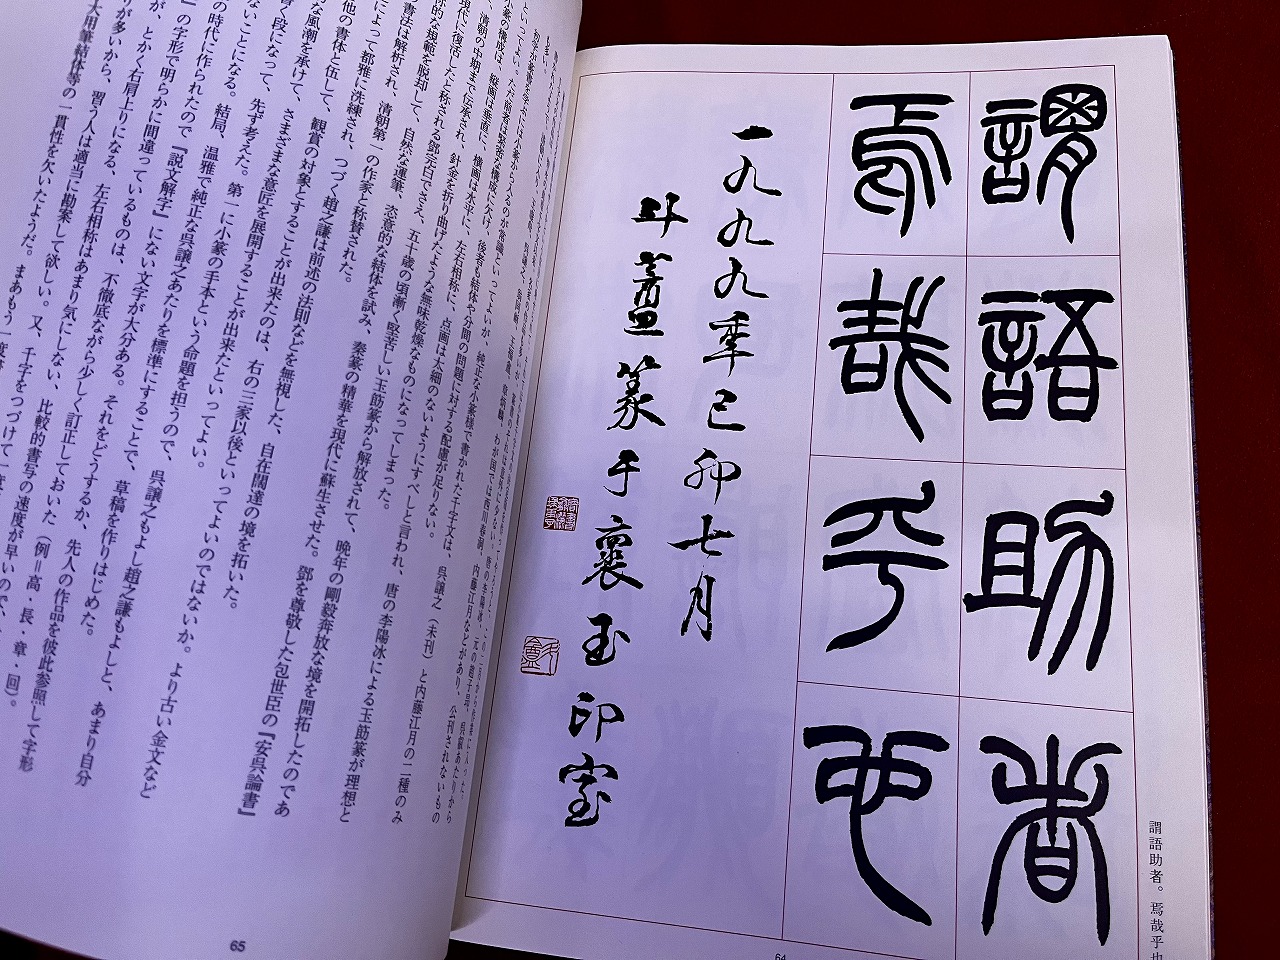 謂語助者
焉哉乎也
一九九九秊己卯七月
斗盦篆于褱玉印室
謂語助者。焉哉乎也
64
といってよい。ただ前者は緊密な構成に欠け、後者も結体や分間の問題に対する配慮が足りない。
小篆の構成は、縦画は垂直に、横画は水平に、左右相称に、点画は太細のないようにすべしと言われ、唐の李陽冰による玉筯篆が理想と
清朝の中期まで伝承され、針金を折り曲げたような無味乾燥なものになってしまった。
現代に復活したと称される鄧完白でさえ、五十歳の頃漸く堅苦しい玉筯篆から解放されて、晩年の剛毅奔放な境を開拓したのであ
的な規範を脱却して、自然な運筆、恣意的な結体を試み、秦篆の精華を現代に蘇生させた。鄧を尊敬した包世臣の『安呉論書』
書法は解析され、清朝第一の作家と称賛された。
によって都雅に洗練され、つづく趙之謙は前述の法則などを無視した、自在闊達の境を拓いた。
他の書体と伍して、観賞の対象とすることが出来たのは、右の三家以後といってよいのではないか。より古い金文など
な風潮を承けて、さまざまな意匠を展開することが出来たといってよい。
書く段になって、先ず考えた。第一に小篆の手本という命題を担うので、呉譲之もよし趙之謙もよしと、あまり自分
ないことになる。結局、温雅で純正な呉譲之あたりを標準にすることで、草稿を作りはじめた。
の時代に作られたので『説文解字』にない文字が大分ある。それをどうするか、先人の作品を彼此参照して字形
』の字形で明らかに間違っているものは、不徹底ながら少しく訂正しておいた（例＝高・長・章・回）。
が、とかく右肩上りになる、左右相称はあまり気にしない、比較的書写の速度が早いので、
りが多いから、習う人は適当に勘案して欲しい。又、千字をつづけて一度
大用筆結体等の一貫性を欠いたようだ。まあもう一度
65